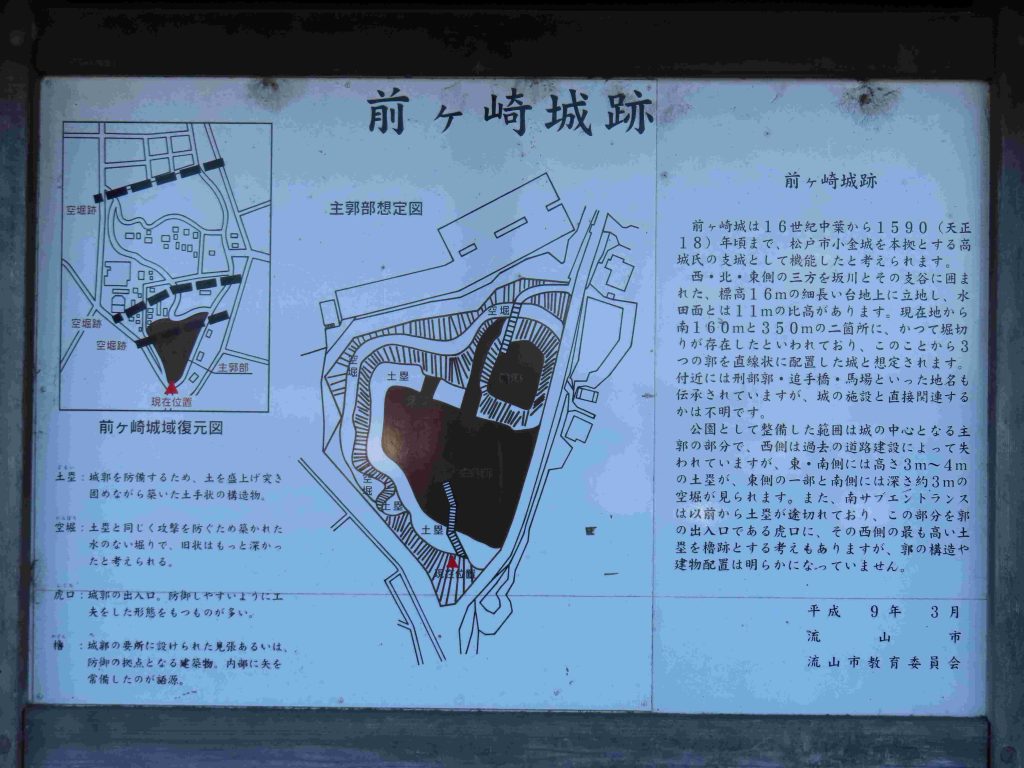 前ヶ崎城跡
空堀跡
空堀跡
空堀跡
主郭部
現在位置
前ヶ崎城域復元図
主郭部想定図
空堀
空堀
土塁
空堀
土塁
土塁
現在位置
土塁：城郭を防備するため、土を盛上げ突き
固めながら築いた土手状の構造物。
空堀：土塁と同じく攻撃を防ぐため築かれた
水のない堀りで、旧状はもっと深かっ
たと考えられる。
虎口：城郭の出入口。防御しやすいように工
夫をした形態をもつものが多い。
櫓：城郭の要所に設けられた見張あるいは、
防御の拠点となる建築物。内部に矢を
常備したのが語源。
前ヶ崎城跡
前ヶ崎城は１６世紀中葉から１５９０（天正
１８）年頃まで、松戸市小金城を本拠とする高
城氏の支城として機能したと考えられます。
西・北・東側の三方を坂川とその支谷に囲ま
れた、標高１６ｍの細長い台地上に立地し、水
田面とは１１ｍの比高があります。現在地から
南１６０ｍと３５０ｍの二箇所に、かつて堀切
りが存在したといわれており、このことから３
つの郭を直線状に配置した城と想定されます。
付近には刑部郭・追手橋・馬場といった地名も
伝承されていますが、城の施設と直接関連する
かは不明です。
公園として整備した範囲は城の中心となる主
郭の部分で、西側は過去の道路建設によって失
われていますが、東・南側には高さ３ｍ～４ｍ
の土塁が、東側の一部と南側には深さ約３ｍの
空堀が見られます。また、南サブエントランス
は以前から土塁が途切れており、この部分を郭
の出入口である虎口に、その西側の最も高い土
塁を櫓跡とする考えもありますが、郭の構造や
建物配置は明らかになっていません。
平成 ９年 ３月
流山市
流山市教育委員会